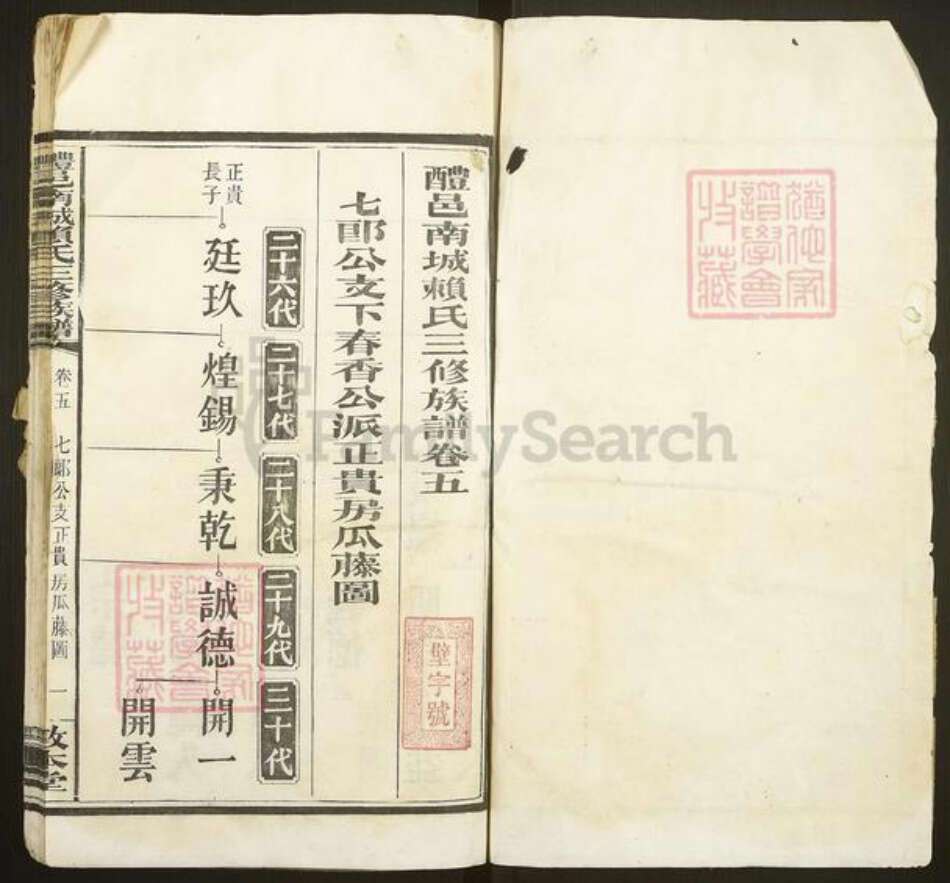 醴邑南城賴氏三修族譜卷五
七郎公支下春香公派正貴房瓜藤圖
二十六代
二十七代
二十八代
二十九代
三十代
正貴
長子
廷玖
煌錫
秉乾
誠德
開一
開雲
醴邑南城賴氏三修族譜
卷五
七郎公支正貴房瓜藤圖
一
壁字號
譜學會
收藏
譜學會
收藏
FamilySearch